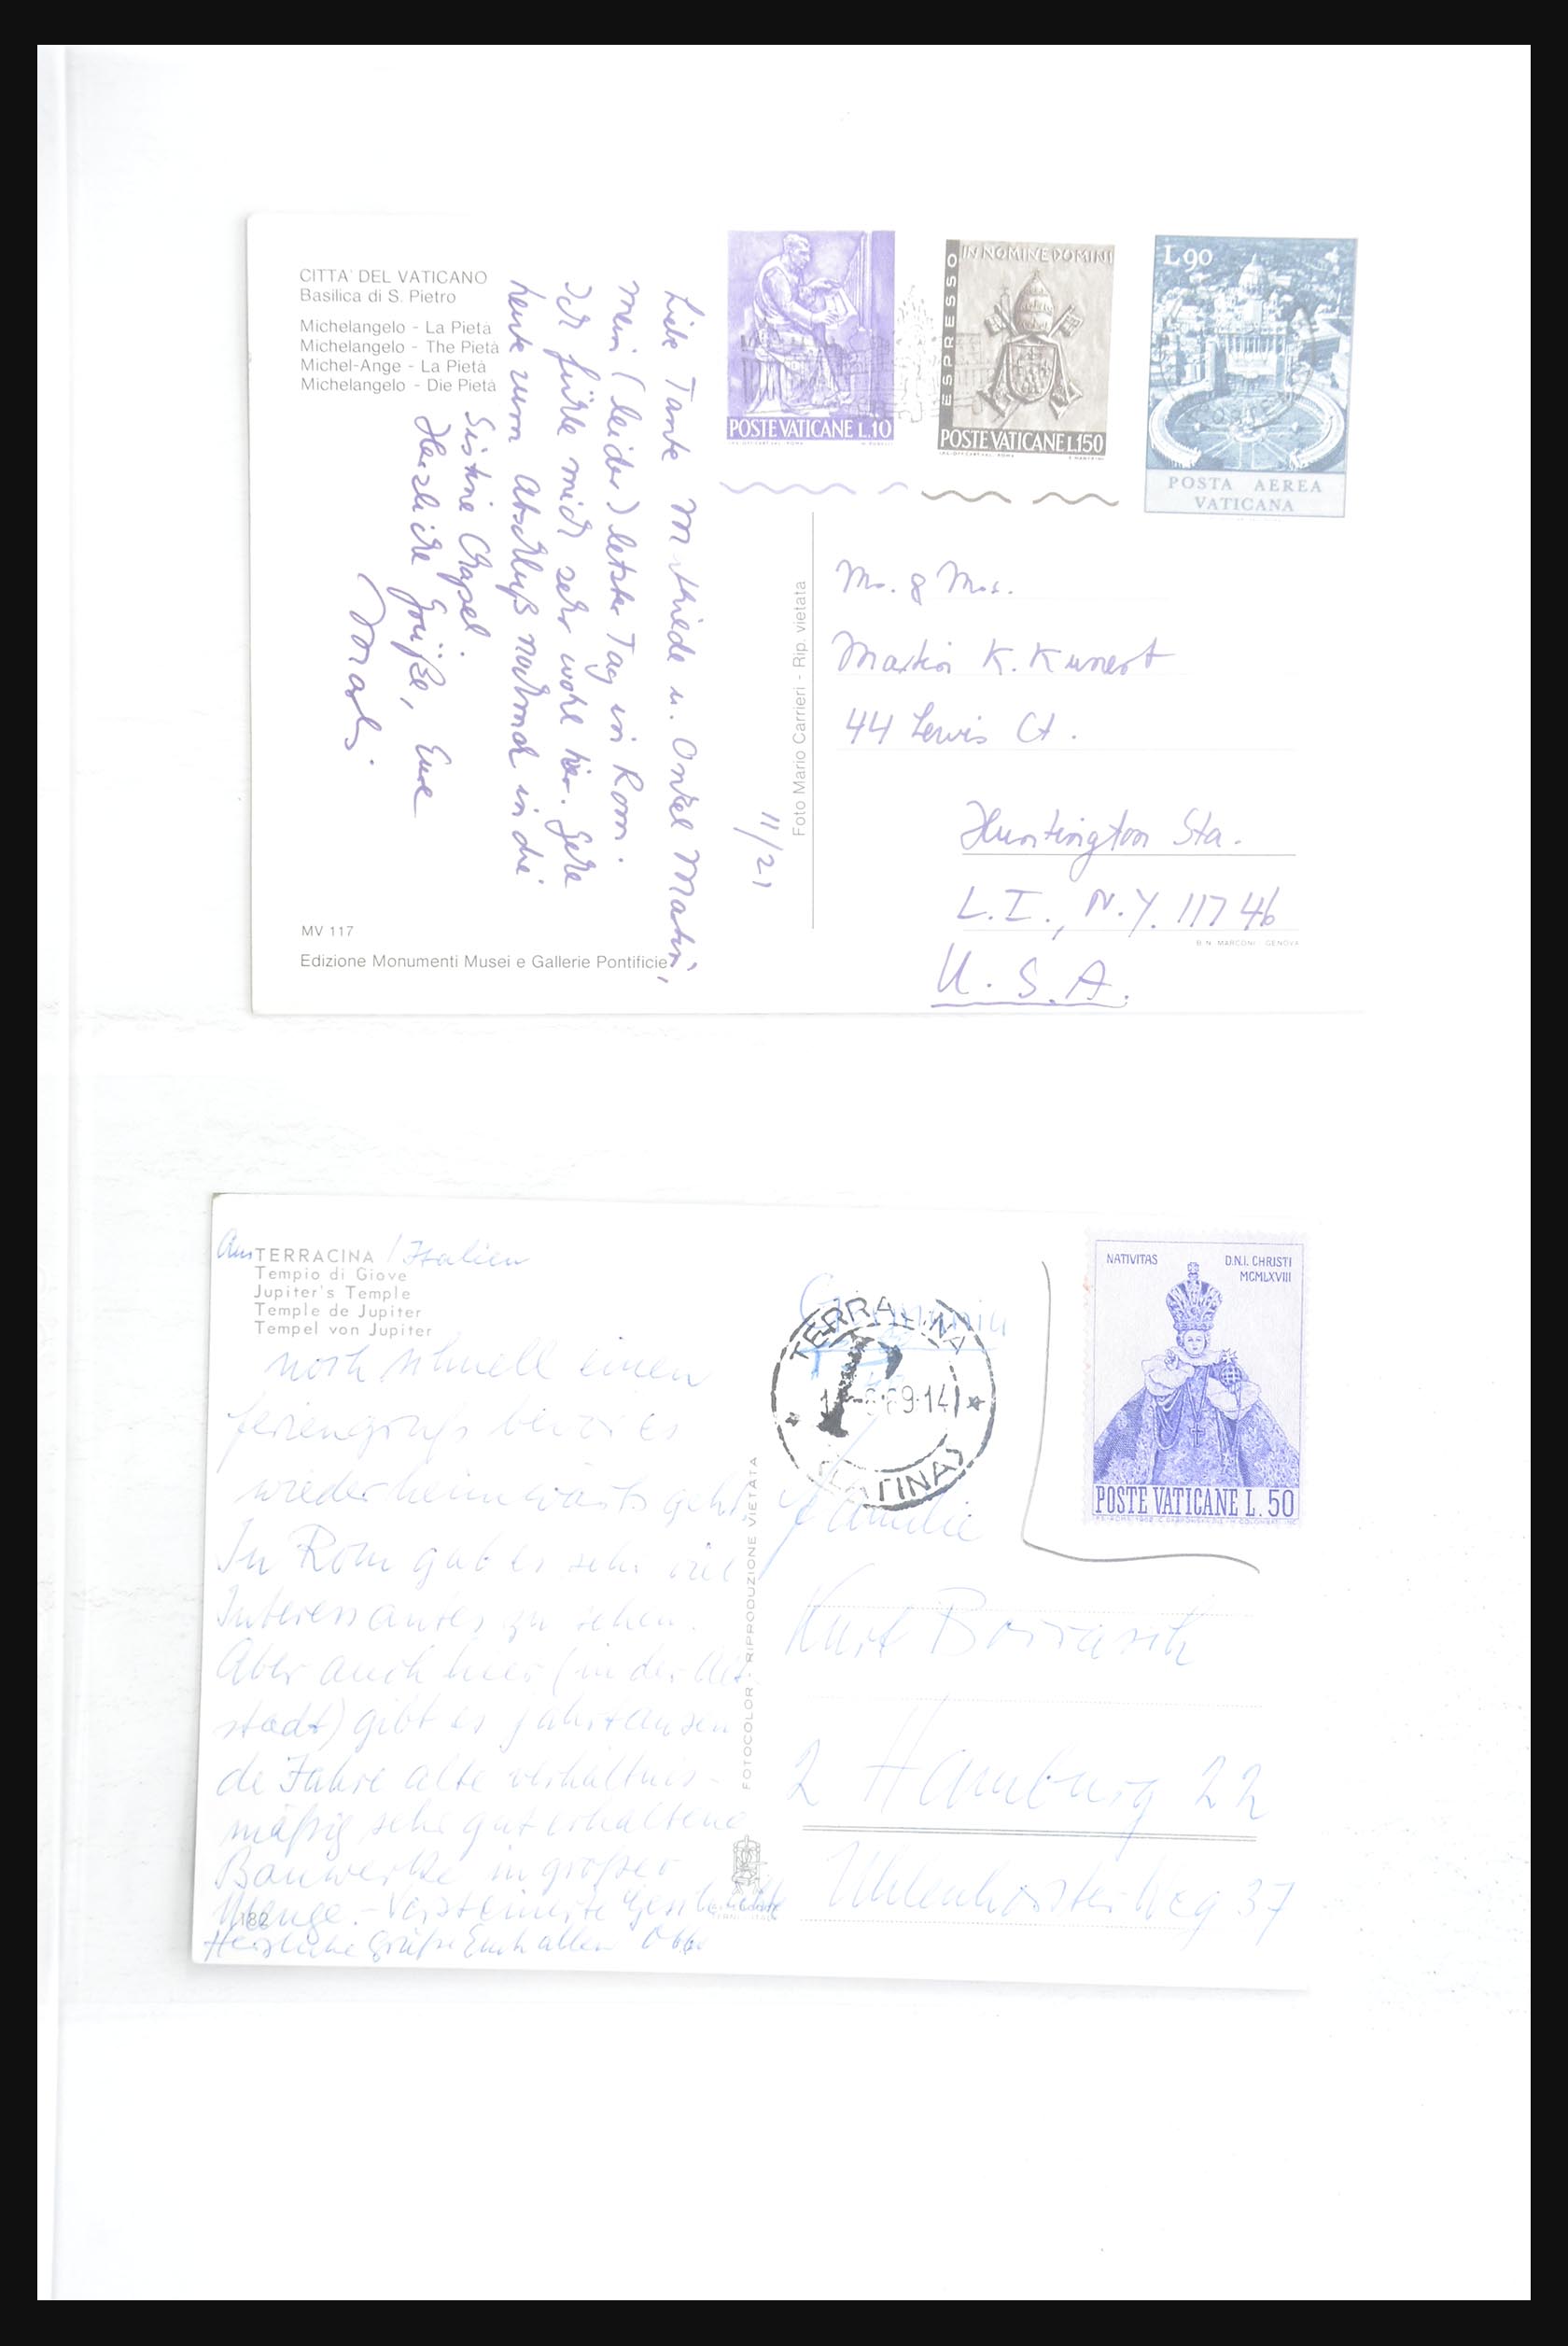 CITTA' DEL VATICANO
Basilica di S. Pietro
Michelangelo - La Pietà
Michelangelo - The Pietà
Michel-Ange - La Pietà
Michelangelo - Die Pietà
Liebe Tante u. Onkel Martin,
mein (leider) letzter Tag in Rom.
Ich fühle mich sehr wohl hier. Gehe
heute zum Abschluß nochmal in die
Sistine Chapel.
Herzliche Grüße, Eure
11/21
MV 117
Edizione Monumenti Musei e Gallerie Pontificie
Foto Mario Carrieri - Rip. vietata
POSTE VATICANE L.10
ESPRESSO
IN NOMINE DOMINI
POSTE VATICANE L.150
L.90
POSTA AEREA
VATICANA
Mr. & Mrs.
Martin K. Kunert
44 Lewis Ct.
Huntington Sta.
L.I., N.Y. 11746
U.S.A.
B.N. MARCONI - GENOVA
Aus TERRACINA / Italien
Tempio di Giove
Jupiter's Temple
Temple de Jupiter
Tempel von Jupiter
noch schnell einen
Feriengruß bevor es
wieder heimwärts geht.
In Rom gab es sehr viel
Interessantes zu sehen.
Aber auch hier (in der Alt-
stadt) gibt es jahrtausen
de Jahre alte verhältnis-
mäßig sehr gut erhaltene
Bauwerke in großer
Menge. - Versteinerte Geschichte
Herzliche Grüße Euch allen
182
FOTOCOLOR - RIPRODUZIONE VIETATA
Germania
TERRACINA
T
69.14
(LATINA)
NATIVITAS D.N.I. CHRISTI
MCMLXVIII
POSTE VATICANE L. 50
Familie
Kurt
2 Hamburg 22
Uhlenhorster Weg 37